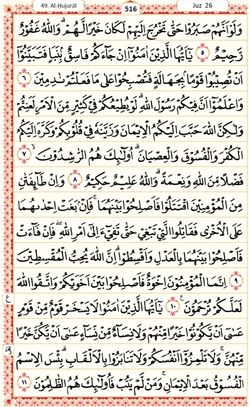 49. Al-Ḥujurāt 516 Juz 26
وَلَوْ اَنَّهُمْ صَبَرُوْا حَتّٰى تَخْرُجَ اِلَيْهِمْ لَكَانَ خَيْرًا لَّهُمْ ۗ وَاللّٰهُ غَفُوْرٌ
رَّحِيْمٌ ٥ يٰٓاَيُّهَا الَّذِيْنَ اٰمَنُوْٓا اِنْ جَاۤءَكُمْ فَاسِقٌۢ بِنَبَاٍ فَتَبَيَّنُوْٓا
اَنْ تُصِيْبُوْا قَوْمًاۢ بِجَهَالَةٍ فَتُصْبِحُوْا عَلٰى مَا فَعَلْتُمْ نٰدِمِيْنَ ٦
وَاعْلَمُوْٓا اَنَّ فِيْكُمْ رَسُوْلَ اللّٰهِ ۗ لَوْ يُطِيْعُكُمْ فِيْ كَثِيْرٍ مِّنَ الْاَمْرِ لَعَنِتُّمْ
وَلٰكِنَّ اللّٰهَ حَبَّبَ اِلَيْكُمُ الْاِيْمَانَ وَزَيَّنَهٗ فِيْ قُلُوْبِكُمْ وَكَرَّهَ اِلَيْكُمُ
الْكُفْرَ وَالْفُسُوْقَ وَالْعِصْيَانَ ۗ اُولٰۤىِٕكَ هُمُ الرّٰشِدُوْنَ ٧
فَضْلًا مِّنَ اللّٰهِ وَنِعْمَةً ۗ وَاللّٰهُ عَلِيْمٌ حَكِيْمٌ ٨ وَاِنْ طَاۤىِٕفَتٰنِ
مِنَ الْمُؤْمِنِيْنَ اقْتَتَلُوْا فَاَصْلِحُوْا بَيْنَهُمَا ۚ فَاِنْۢ بَغَتْ اِحْدٰىهُمَا
عَلَى الْاُخْرٰى فَقَاتِلُوا الَّتِيْ تَبْغِيْ حَتّٰى تَفِيْۤءَ اِلٰٓى اَمْرِ اللّٰهِ ۚ فَاِنْ فَاۤءَتْ
فَاَصْلِحُوْا بَيْنَهُمَا بِالْعَدْلِ وَاَقْسِطُوْا ۗ اِنَّ اللّٰهَ يُحِبُّ الْمُقْسِطِيْنَ
٩ اِنَّمَا الْمُؤْمِنُوْنَ اِخْوَةٌ فَاَصْلِحُوْا بَيْنَ اَخَوَيْكُمْ وَاتَّقُوا اللّٰهَ
لَعَلَّكُمْ تُرْحَمُوْنَ ١٠ يٰٓاَيُّهَا الَّذِيْنَ اٰمَنُوْا لَا يَسْخَرْ قَوْمٌ مِّنْ قَوْمٍ
عَسٰٓى اَنْ يَّكُوْنُوْا خَيْرًا مِّنْهُمْ وَلَا نِسَاۤءٌ مِّنْ نِّسَاۤءٍ عَسٰٓى اَنْ يَّكُنَّ خَيْرًا
مِّنْهُنَّ ۚ وَلَا تَلْمِزُوْٓا اَنْفُسَكُمْ وَلَا تَنَابَزُوْا بِالْاَلْقَابِ ۗ بِئْسَ الِاسْمُ
الْفُسُوْقُ بَعْدَ الْاِيْمَانِ ۚ وَمَنْ لَّمْ يَتُبْ فَاُولٰۤىِٕكَ هُمُ الظّٰلِمُوْنَ ١١